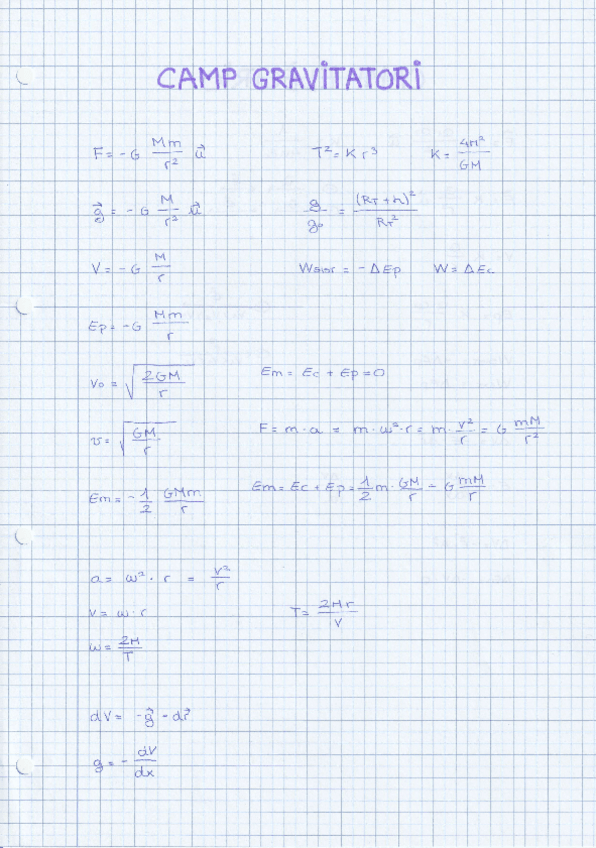 CAMP GRAVITATORI
F = -G Mm/r² u⃗    T² = K r³    K = 4π²/GM
g⃗ = -G M/r² u⃗    g/g₀ = (RT + h)²/RT²
V = -G M/r    Wexter = -ΔEp    W = ΔEc
Ep = -G Mm/r
v₀ = √(2GM/r)    Em = Ec + Ep = 0
v = √(GM/r)    F = m · a = m · ω² · r = m · v²/r = G mM/r²
Em = -1/2 GMm/r    Em = Ec + Ep = 1/2 m · GM/r - G mM/r
a = ω² · r = v²/r
v = ω · r    T = 2πr/v
ω = 2π/T
dV = -g⃗ - dr⃗
g = - dV/dx